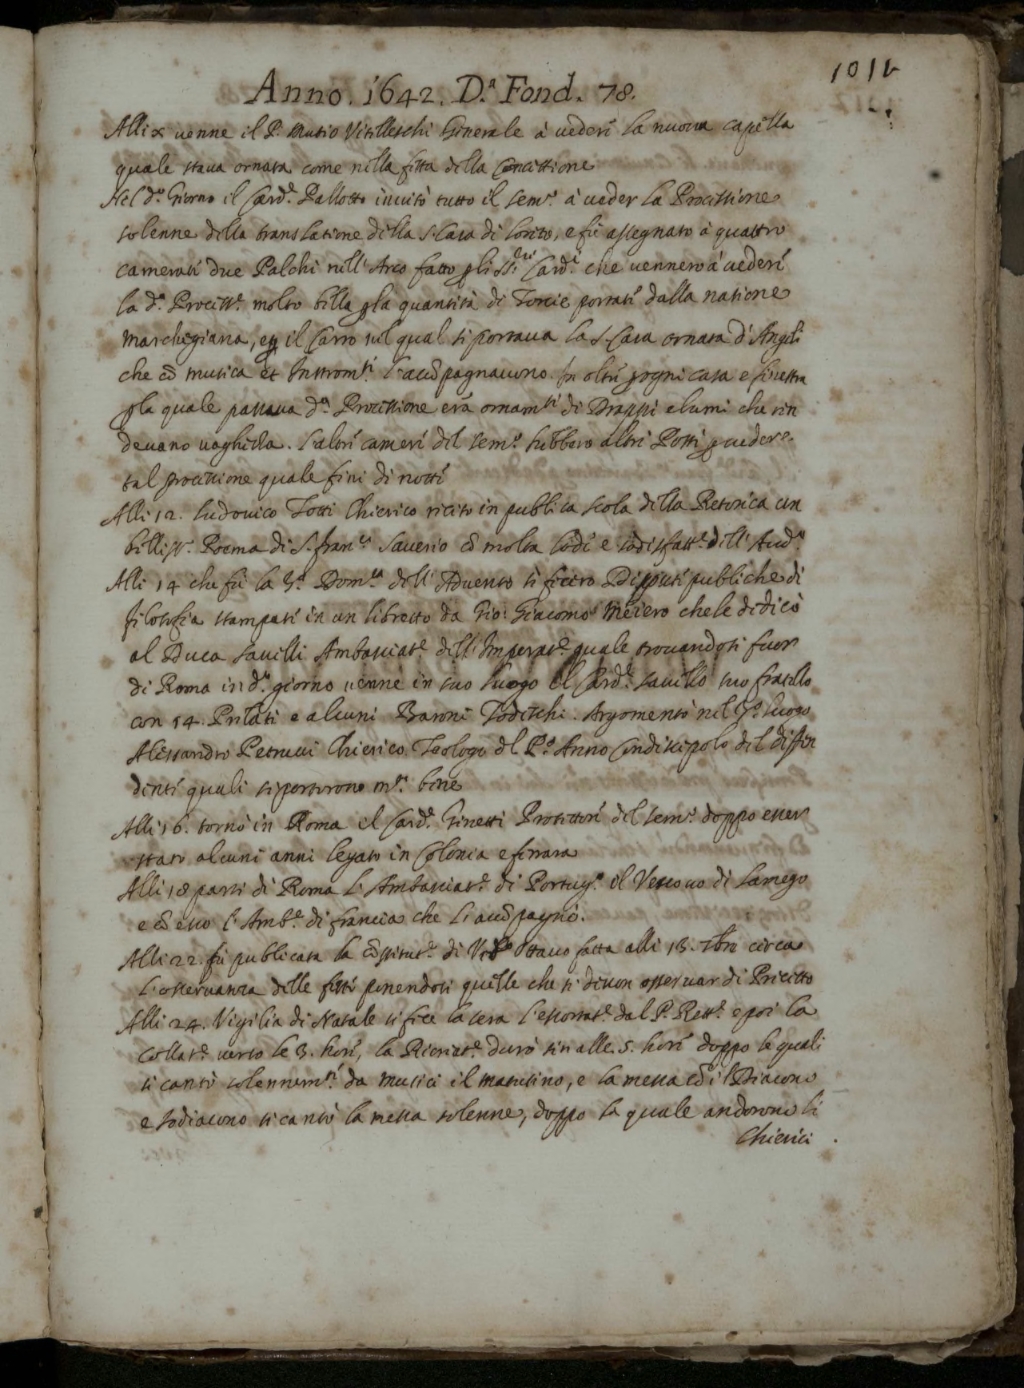 1011
Anno. 1642. D.ª Fond. 78.
Alli venne il P. Mutio Vitelleschi Generale à vedere la nuova capella
quale stava ornata come nella festa della Concettione
Nel d.º Giorno il Card.e Pallotto invitò tutto il sem.º à veder la Processione
solenne della translatione della S. Casa di Loreto, e fu assegnato à quattro
camerate due Palchi nell'Arco fatto p li SS.ri Card.i che vennero à vedere
la d.ª Process.e molto bella p la quantità di Torcie portate dalla natione
Marchegiana, e p il Carro nel qual si portava la S. Casa ornata d'Angeli
che cõ musica et Instrom.ti l'accõpagnavono. In oltre p ogni casa e finestra
p la quale passava d.ª Processione era ornam.ti di Drappi e lumi che ren
devano vaghezza. L'altre camere del sem.º hebbero altri Posti p vedere
tal processione quale finì di notte
Alli 12. Ludovico Totti Chierico recitò in publica scola della Retorica un
belliss.º Poema di S. Fran.co Saverio cõ molta lode e sodisfatt.e dell'Aud.º
Alli 14 che fù la 3.ª Dom.ca dell'Advento si fecero Dispute publiche di
filosofia stampate in un libretto da Gio: Giacomo Meiero che le dedicò
al Duca Savelli Ambasciat.e dell'Imperat.e quale trovandosi fuor
di Roma in d.º giorno venne in suo luogo el Card.e Savello suo fratello
con 14. Prelati e alcuni Baroni Todeschi. Argomentò nel 3.º luogo
Alessandro Petrucci Chierico Teologo del P.º Anno Condiscipolo del diffen
dente quali si portorono m.to bene
Alli 16. tornò in Roma el Card.e Ginetti Protettore del sem.º doppo esser
stato alcuni anni legato in Colonia e ferrara
Alli 18 partì di Roma l'Ambasciat.e di Portug.º il Vescovo di Lamego
e cõ esso l'Amb.e di francia che l'accõpagnò.
Alli 22. fù publicata la cõstitut.e di Urb.º Ottavo fatta alli 13. 7bre circa
l'osservanza delle feste ponendosi quelle che si devon osservar di Precetto
Alli 24. Vigilia di Natale si fece la sera l'essortat.e dal P. Rett.e e poi la
Collat.e verso le 3. hore, la Ricreat.e durò sin alle 5. hore doppo le quali
si cantò solennem.te da Musici il matutino, e la messa cõ il Diacono
e sodiacono si cantò la messa solenne, doppo la quale andorono li
Chierici